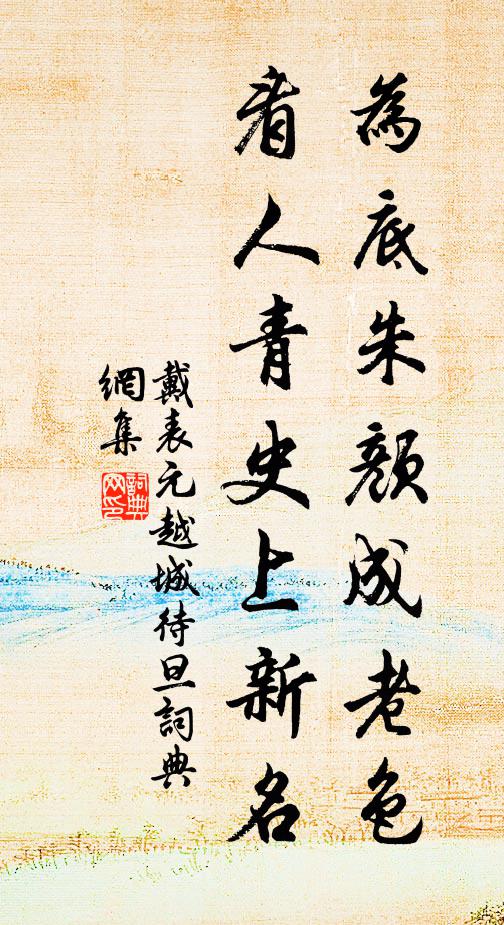 為底朱顏成老色
看人青史上新名
戴表元越城待旦詞典
網集
詞典
网印